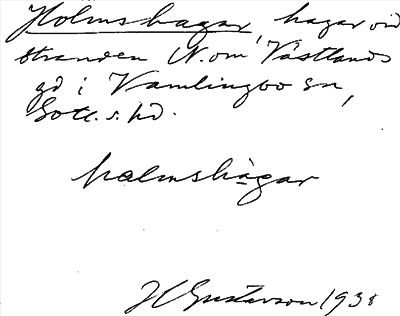 Holmshagar, hagar vid
stranden N. om Västlands
gd i Vamlingbo sn,
Gotl. s. hd.
holmshàgar
H Gustavson 1938